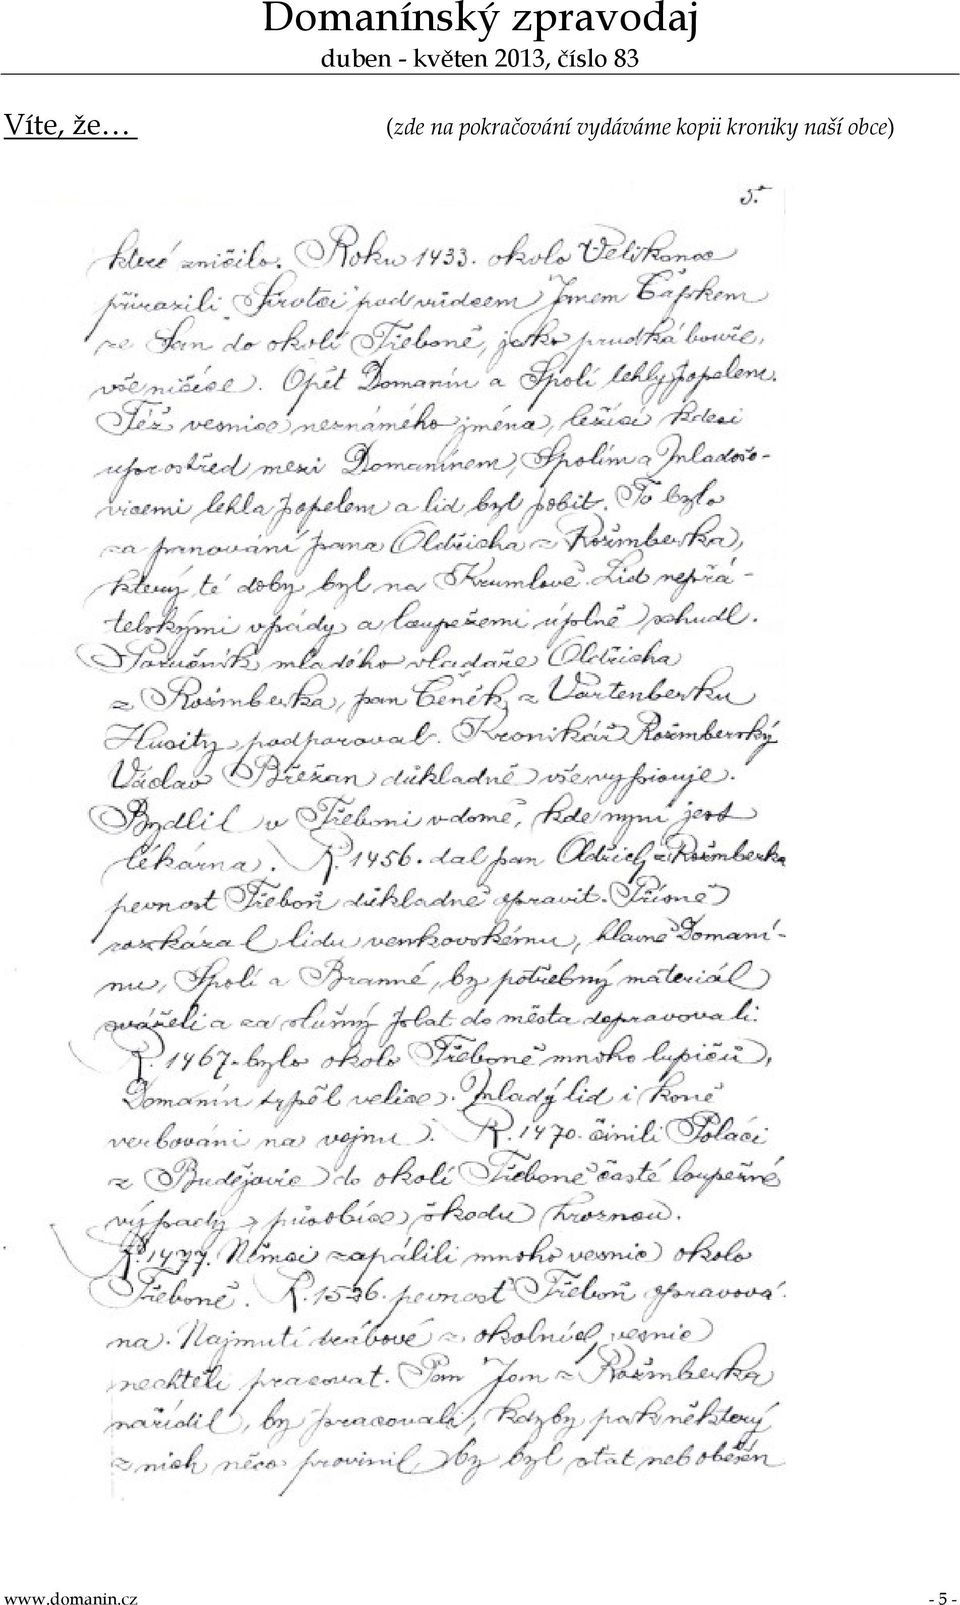 Domanínský zpravodaj
duben - květen 2013, číslo 83
Víte, že… (zde na pokračování vydáváme kopii kroniky naší obce)
5.
které zničilo. Roku 1433. okolo Velikonoc
přirazili „Sirotci" pod vůdcem Janem Čapkem
ze San do okolí Třeboně, jako prudká bouře,
vše ničíce. Opět Domanín a Spolí lehly popelem.
Též vesnice neznámého jména, ležící kdesi
uprostřed mezi Domanínem, Spolím a Mladošo-
vicemi lehla popelem a lid byl pobit. To bylo
za panování pana Oldřicha z Rožmberka,
který té doby byl na Krumlově. Lid nepřá-
telskými vpády a loupežemi úplně schudl.
Poručník mladého vladaře Oldřicha
z Rožmberka, pan Čeněk z Vartenberku
Husity podporoval. Kronikář Rožmberský
Václav Břežan důkladně vše vypisuje.
Bydlil v Třeboni v domě, kde nyní jest
lékárna. R. 1456. dal pan Oldřich z Rožmberka
pevnost Třeboň důkladně opravit. Přísně
rozkázal lidu venkovskému, hlavně Domaní-
nu, Spolí a Branné, by potřebný materiál
sváželi a za slušný plat do města dopravovali.
R. 1467. bylo okolo Třeboně mnoho lupičů,
Domanín trpěl velice. Mladý lid i koně
verbováni na vojnu. R. 1470. činili Poláci
z Budějovic do okolí Třeboně časté loupežné
výpady, působíce škodu hroznou.
R. 1477. Němci zapálili mnoho vesnic okolo
Třeboně. R. 1536. pevnost Třeboň opravová
na. Najmutí drábové z okolních vesnic
nechtěli pracovat. Pan Jan z Rožmberka
nařídil, by pracovali, kdyby pak některý
z nich něco provinil, by byl stat neb oběšen
www.domanin.cz - 5 -